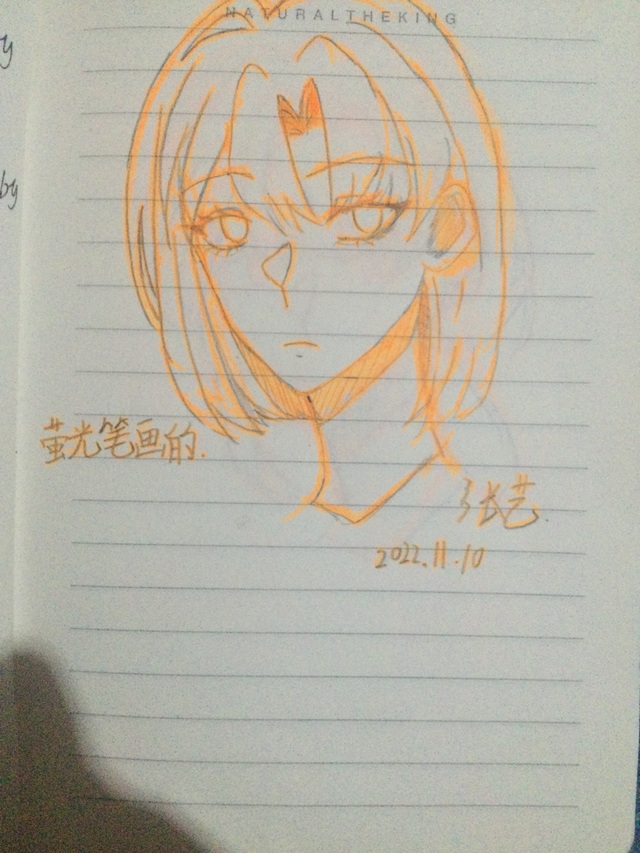 NATURALTHEKING
y
by
萤光笔画的.
张艺.
2022.11.10